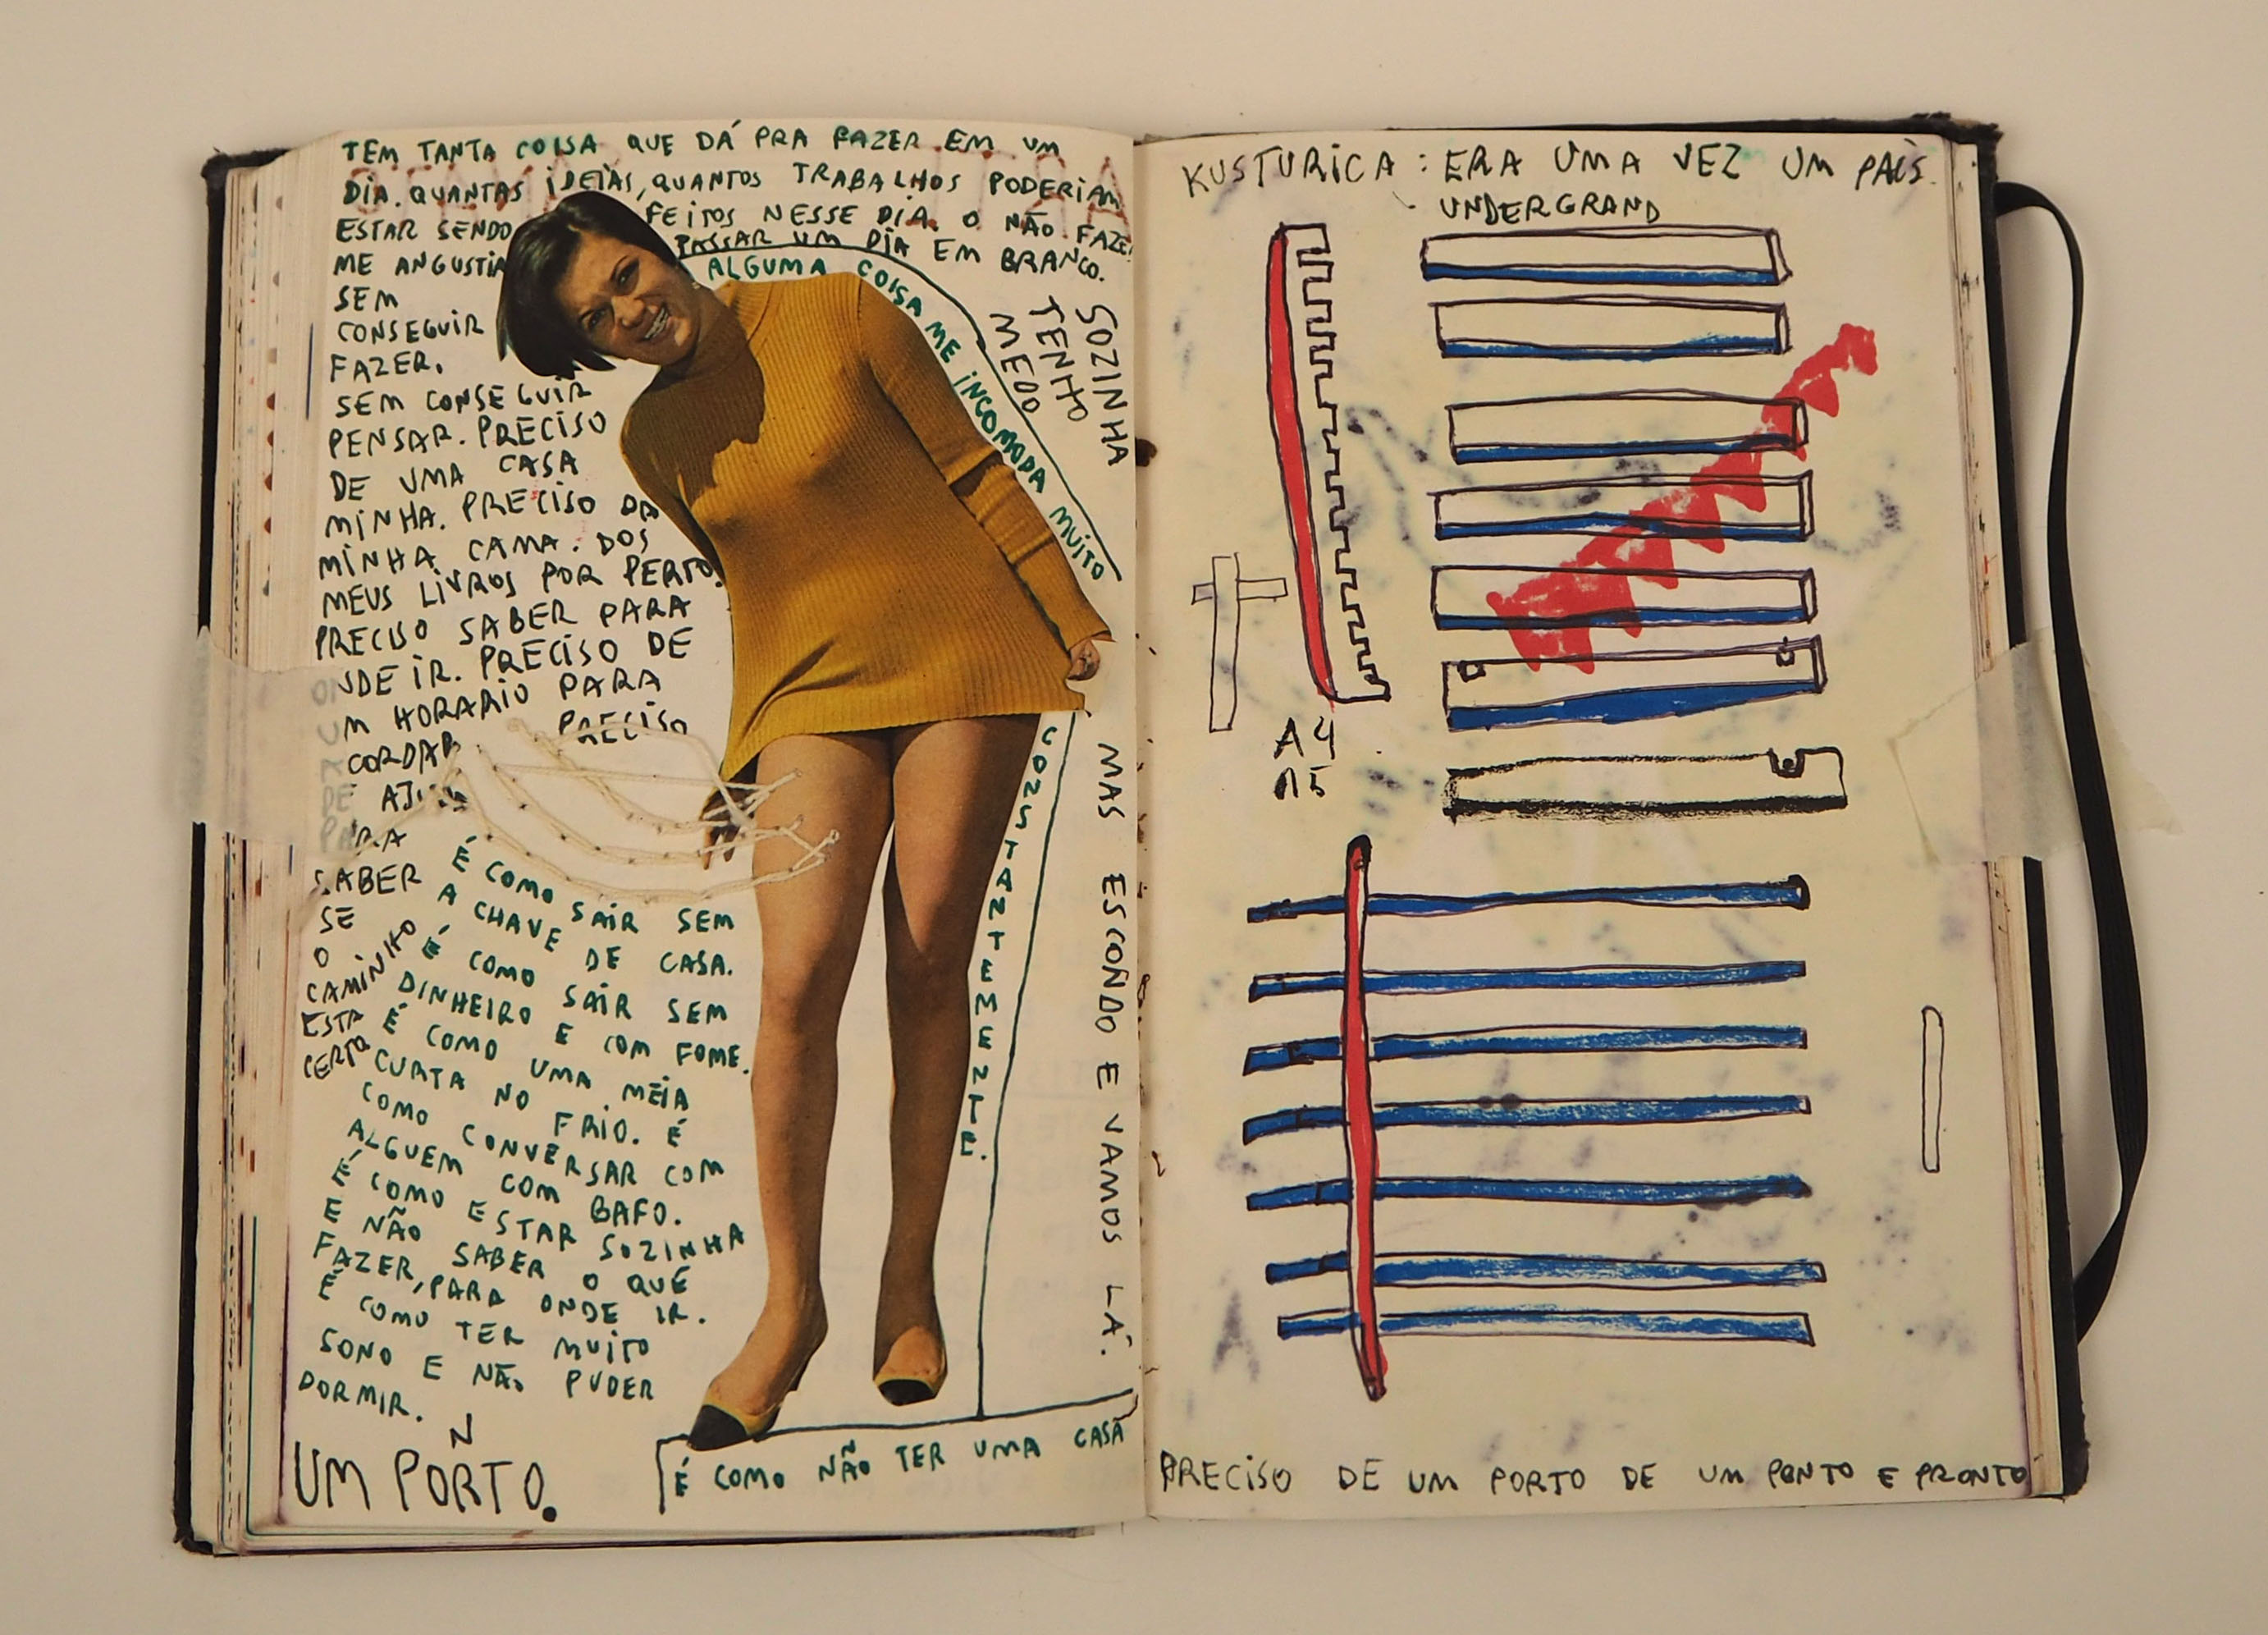 TEM TANTA COISA QUE DÁ PRA FAZER EM UM
DIA. QUANTAS IDEIAS, QUANTOS TRABALHOS PODERIAM
ESTAR SENDO FEITOS NESSE DIA. O NÃO FAZE
ME ANGUSTIA PASSAR UM DIA EM BRANCO.
SEM
CONSEGUIR
FAZER.
SEM CONSEGUIR
PENSAR. PRECISO
DE UMA CASA
MINHA. PRECISO DA
MINHA CAMA. DOS
MEUS LIVROS POR PERTO.
PRECISO SABER PARA
ONDE IR. PRECISO DE
UM HORARIO PARA
CORDAR PRECISO
DE
RA
SABER
SE
O
CAMINHO
ESTA
CERTO
É COMO SAIR SEM
A CHAVE DE CASA.
É COMO SAIR SEM
DINHEIRO E COM FOME.
É COMO UMA MEIA
CURTA NO FRIO. É
COMO CONVERSAR COM
ALGUEM COM BAFO.
É COMO ESTAR SOZINHA
E NÃO SABER O QUÉ
FAZER, PARA ONDE IR.
É COMO TER MUITO
SONO E NÃO PUDER
DORMIR.
N
UM PORTO.
ALGUMA COISA ME INCOMODA MUITO
CONSTANTEMENTE.
SOZINHA
TENHO
MEDO
MAS ESCONDO E VAMOS LÁ.
É COMO NÃO TER UMA CASA
KUSTURICA: ERA UMA VEZ UM PAÍS.
UNDERGRAND
A4
A5
PRECISO DE UM PORTO DE UM PONTO E PRONTO